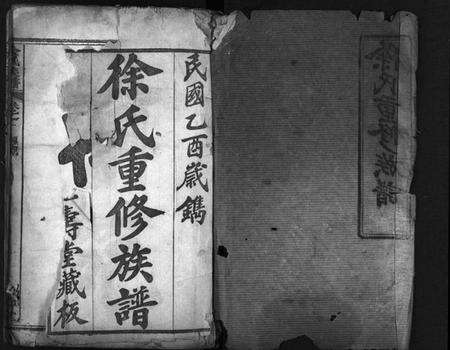 民國乙酉歲鐫
徐氏重修族譜
壽堂藏板
徐氏重修族譜